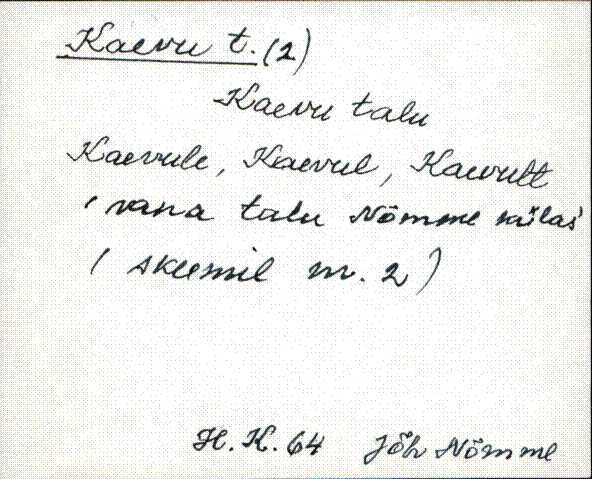 Kaevu t. (2)
Kaevu talu
Kaevule, Kaevul, Kaevult
' vana talu Nõmme külas'
( skeemil nr. 2)
H. K. 64 Jõh Nõmme